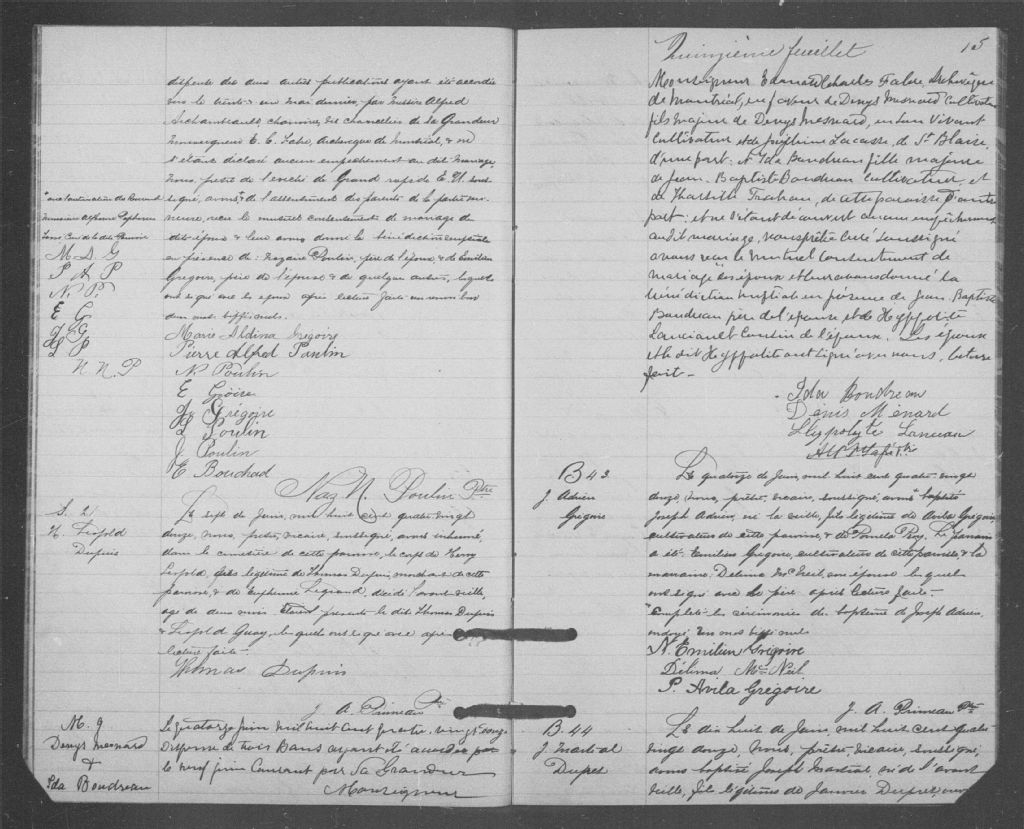 dispense des deux autres publications ayant été accordée
vu le trente & un mai dernier, par Messire Alfred
Archambeault, chanoine, chancelier de Sa Grandeur
Monseigneur E. C. Fabre Archevêque de Montréal, & ne
s'étant déclaré aucun empêchement au dit mariage,
Nous, prêtre de l'évêché de Grand rapids E. U. sous
signé, avons, de l'assentiment des parents de la partie mi
neure, reçu le mutuel consentement de mariage des
dits époux & leur avons donné la bénédiction nuptiale
en présence de Nazaire Poulin, père de l'époux & de Emilien
Gregoire, père de l'épouse & de quelques autres, lesquels
ont signé avec les époux après lecture faite
deux mots biffés nuls.
avec l'autorisation du Reverend
Messire Alphonse
Curé de la dite Paroisse
M. A. G
P A P
N. P.
E G
J G
L P
N. N. P
Marie Aldina Gregoire
Pierre Alfred Poulin
N. Poulin
E Groire
Grégoire
Poulin
J Poulin
E. Bouchad
Naz N. Poulin Ptre
S. 21
H. Léopold
Dupuis
Le sept de Juin, mil huit cent quatre vingt
douze, nous, prêtre, vicaire, soussigné, avons inhumé
dans le cimetière de cette paroisse, le corps de Henry
Léopold, fils légitime de Thomas Dupuis, marchand de cette
paroisse, & de Euphémie Legrand, décédé l'avant veille,
agé de deux mois. Etaient présents le dit Thomas Dupuis
& Léopold Guay, lesquels ont signé avec
lecture faite.
Thomas Dupuis
J. A. Primeau Ptre
M. 9
Denys Mesnard
&
Ida Boudreau
Le quatorze juin mil huit cent quatre-vingt douze
Dispense de trois Bans ayant été accordée par
le neuf juin courant par Sa Grandeur
Monseigneur
Quinzième feuillet
15
Monseigneur Edouard Charles Fabre Archevêque
de Montréal, en faveur de Denys Mesnard Cultivateur
fils majeur de Denys Mesnard, en son vivant
Cultivateur et de Joséphine Lacasse, de St Blaise,
d'une part: & Ida Boudreau fille majeure
de Jean-Baptiste Boudreau Cultivateur, et
de Tharsille Trahan, de cette paroisse d'autre
part: et ne s'étant découvert aucun empêchement
au dit mariage, nous prêtre Curé soussigné
avons reçu le mutuel Consentement de
mariage des époux et leur avons donné la
bénédiction nuptiale en présence de Jean-Baptiste
Boudreau père de l'épouse et de Hyppolite
Lanciault Cousin de l'époux. Les époux
et le dit Hyppolite ont signé avec nous, lecture
faite -
Ida Boudreau
Dénis Ménard
Hyppolyte Lanciau
B 43
J. Adrien
Gregoire
Le quatorze de Juin, mil huit cent quatre vingt
douze, Nous, prêtre, vicaire, soussigné, avons baptisé
Joseph Adrien, né la veille, fils légitime de Avila Gregoire,
cultivateur de cette paroisse, & de Pamela Roy. Le Parrain
a été Emilien Gregoire, cultivateur de cette paroisse, & la
marraine, Delima McNeil, son épouse lesquels
ont signé avec le père après lecture faite.
Completé les cérémonies du baptême de Joseph Adrien,
ondoyé. Un mot biffé nul
N. Emilien Grégoire
Délima Mc Neil
P. Avila Grégoire
J. A. Primeau Ptre
B. 44
J Martial
Dupré
Le dix huit de Juin, mil huit cent quatre
vingt douze, Nous, prêtre, vicaire, soussigné,
avons baptisé Joseph Martial, né de l'avant
veille, fils légitime de Janvier Dupré,